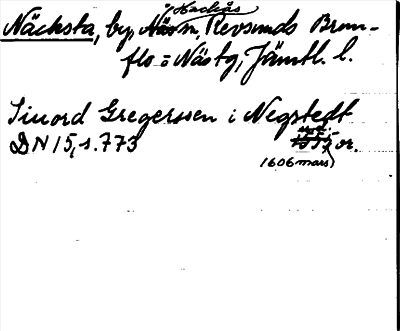 Hackås
Näcksta, by, Näs sn, Revsunds Brun-
flo o Näs tg, Jämtl. l.
Sinord Gregerssen i Negstedt
DN 15, s. 773 or.
1606 mars